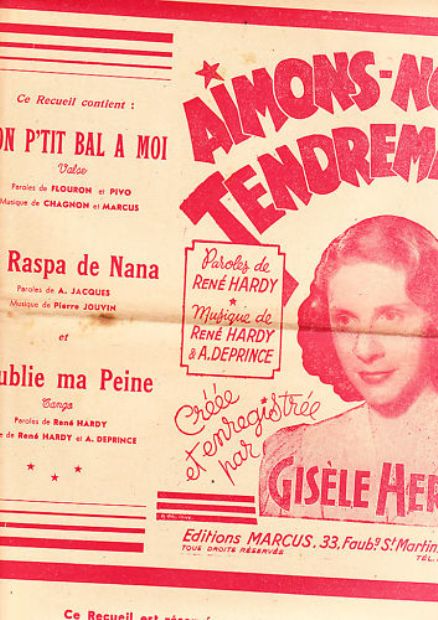 Ce Recueil contient :
ON P'TIT BAL A MOI
Valse
Paroles de FLOURON et PIVO
Musique de CHAGNON et MARCUS
Raspa de Nana
Paroles de A. JACQUES
Musique de Pierre JOUVIN
et
ublie ma Peine
Tango
Paroles de René HARDY
e de René HARDY et A. DEPRINCE
AIMONS-NO
TENDREME
Paroles de
RENÉ HARDY
Musique de
RENÉ HARDY
& A. DEPRINCE
Créée
et enregistrée
par
GISÈLE HER
Editions MARCUS. 33, Faubg St Martin
TOUS DROITS RÉSERVÉS
TÉL.
Ce Recueil est réservé